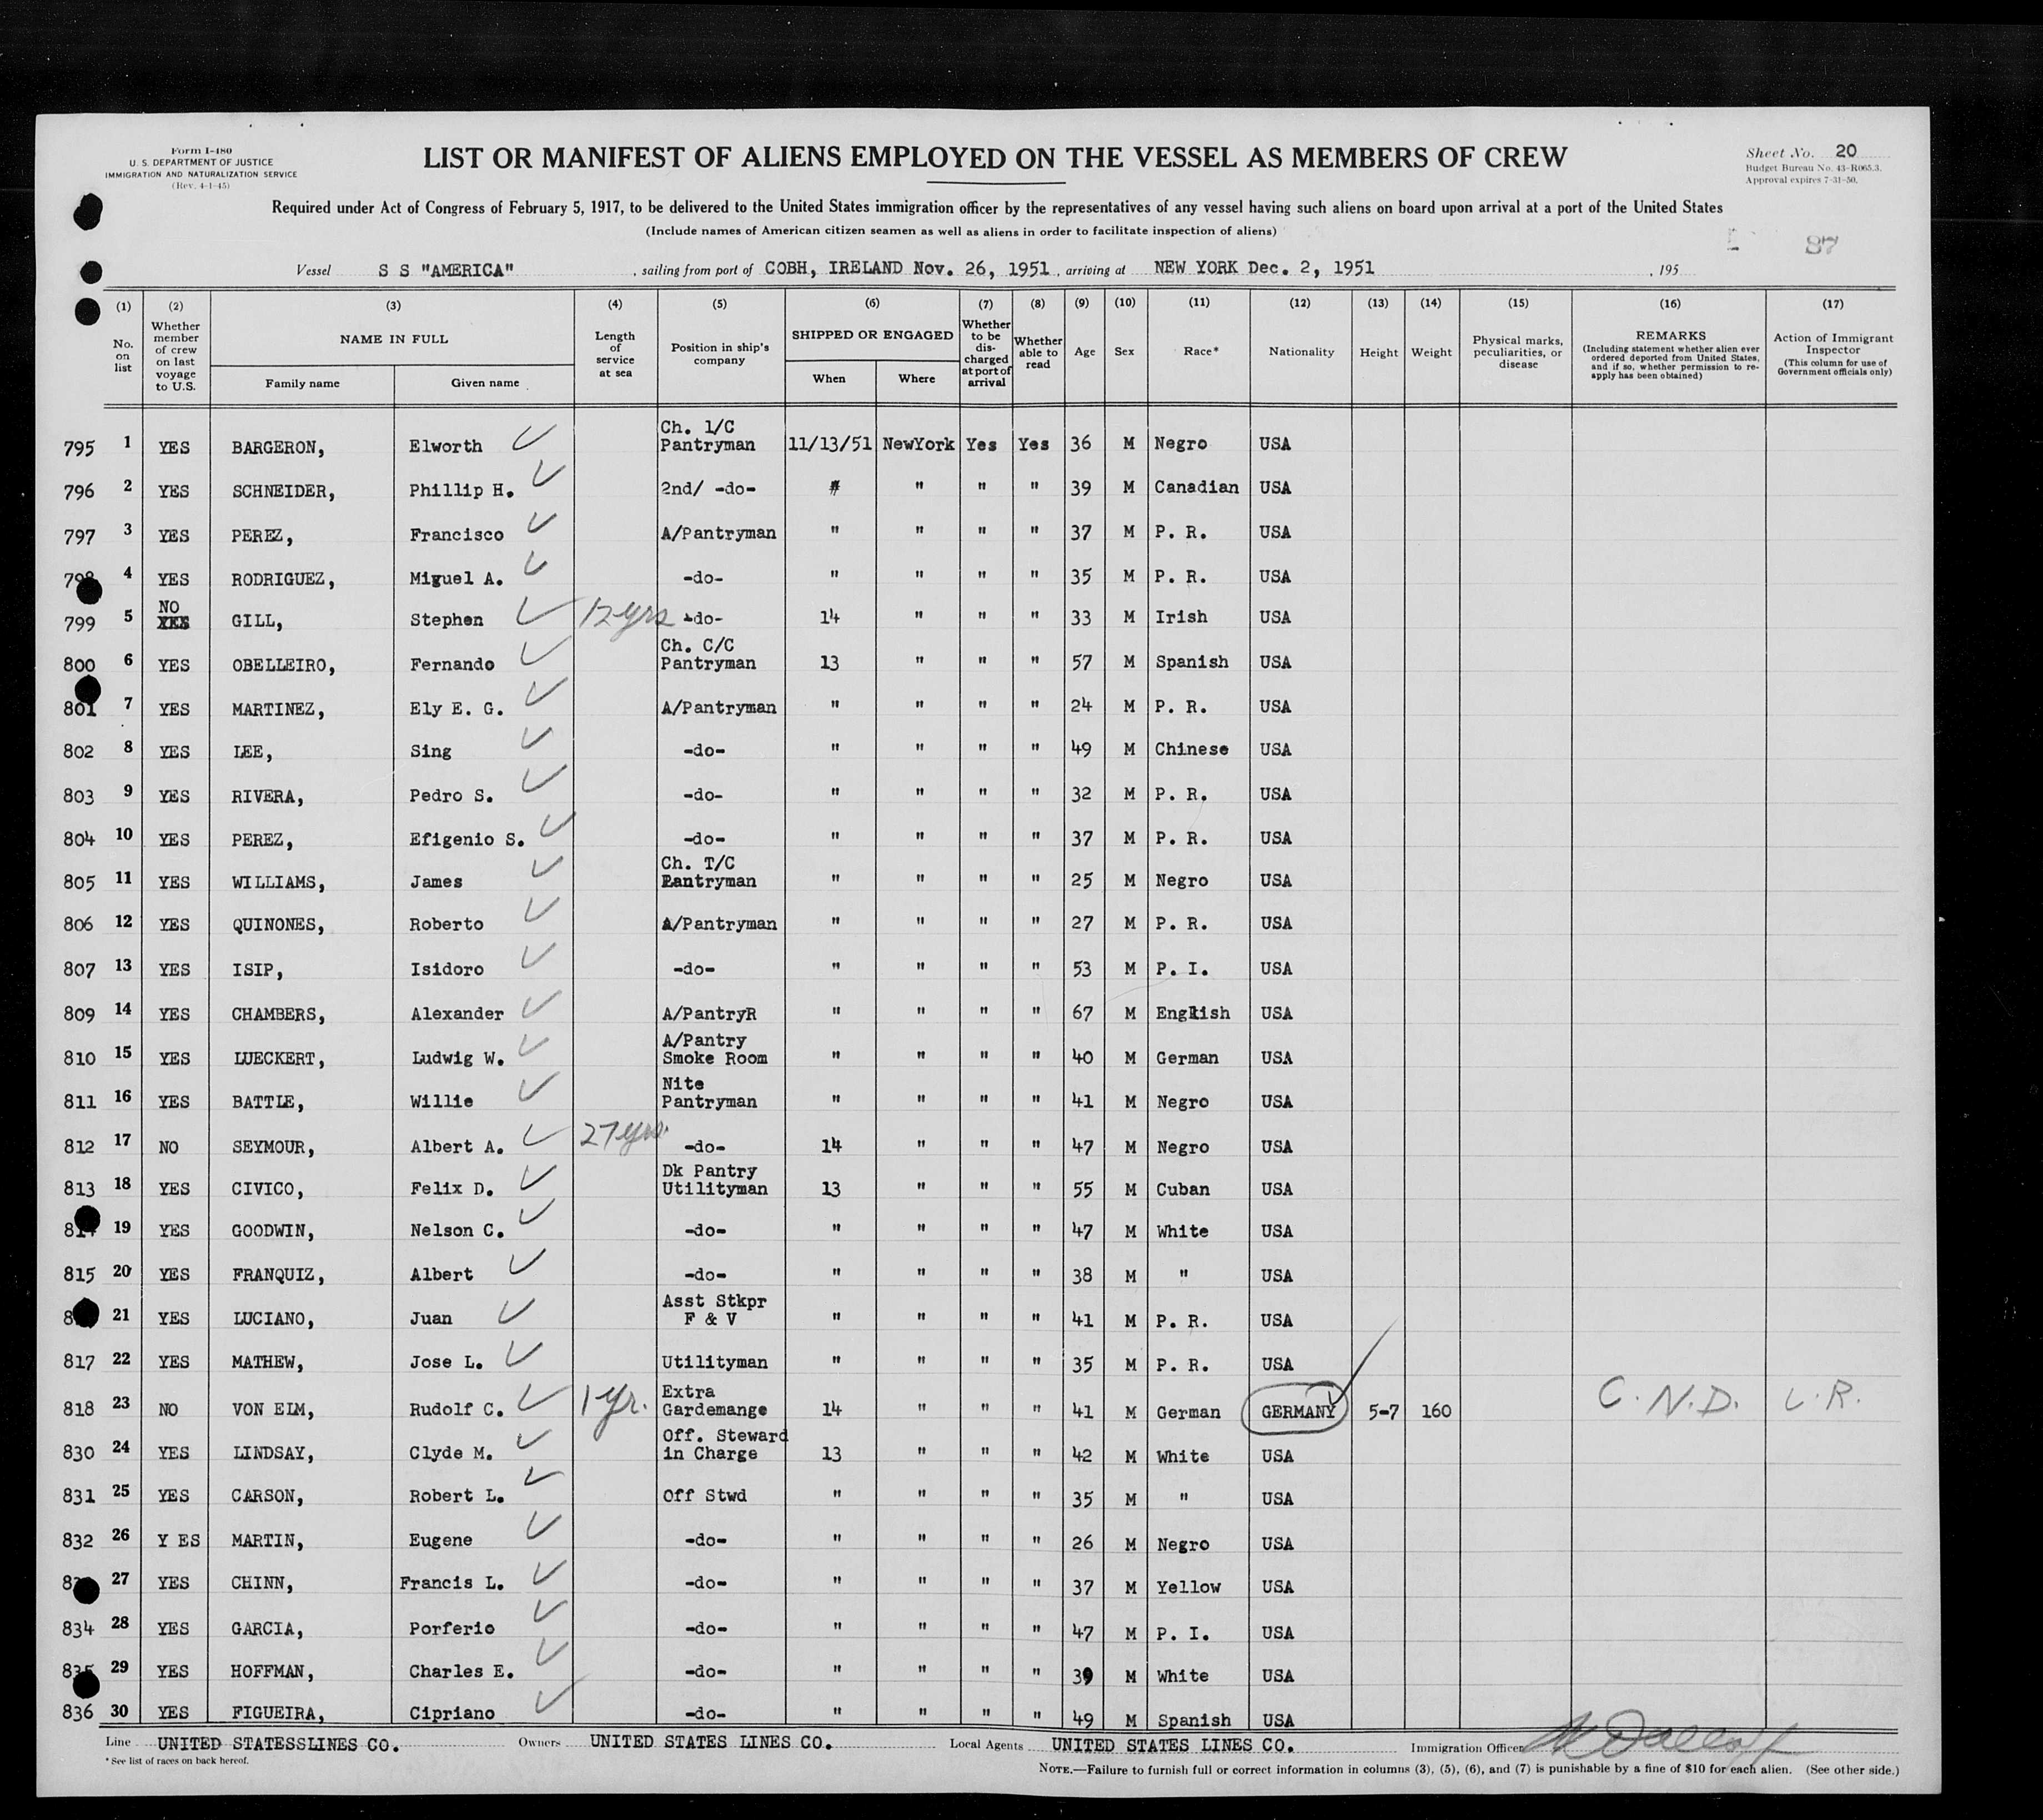 Form I-480
U. S. DEPARTMENT OF JUSTICE
IMMIGRATION AND NATURALIZATION SERVICE
(Rev. 4-1-45)
LIST OR MANIFEST OF ALIENS EMPLOYED ON THE VESSEL AS MEMBERS OF CREW
Sheet No. 20
Budget Bureau No. 43-R065.3.
Approval expires 7-31-50.
Required under Act of Congress of February 5, 1917, to be delivered to the United States immigration officer by the representatives of any vessel having such aliens on board upon arrival at a port of the United States
(Include names of American citizen seamen as well as aliens in order to facilitate inspection of aliens)
87
Vessel S S "AMERICA" , sailing from port of COBH, IRELAND Nov. 26, 1951 , arriving at NEW YORK Dec. 2, 1951 , 195
(1) (2) (3) (4) (5) (6) (7) (8) (9) (10) (11) (12) (13) (14) (15) (16) (17)
No. on list
Whether member of crew on last voyage to U.S.
NAME IN FULL
Family name Given name
Length of service at sea
Position in ship's company
SHIPPED OR ENGAGED
When Where
Whether to be discharged at port of arrival
Whether able to read
Age Sex Race* Nationality Height Weight
Physical marks, peculiarities, or disease
REMARKS
(Including statement whether alien ever ordered deported from United States, and if so, whether permission to reapply has been obtained)
Action of Immigrant Inspector
(This column for use of Government officials only)
795 1 YES BARGERON, Elworth Ch. 1/C Pantryman 11/13/51 NewYork Yes Yes 36 M Negro USA
796 2 YES SCHNEIDER, Phillip H. 2nd/ -do- " " " " 39 M Canadian USA
797 3 YES PEREZ, Francisco A/Pantryman " " " " 37 M P. R. USA
798 4 YES RODRIGUEZ, Miguel A. -do- " " " " 35 M P. R. USA
799 5 NO YES GILL, Stephen 12 yrs -do- 14 " " " 33 M Irish USA
800 6 YES OBELLEIRO, Fernando Ch. C/C Pantryman 13 " " " 57 M Spanish USA
801 7 YES MARTINEZ, Ely E. G. A/Pantryman " " " " 24 M P. R. USA
802 8 YES LEE, Sing -do- " " " " 49 M Chinese USA
803 9 YES RIVERA, Pedro S. -do- " " " " 32 M P. R. USA
804 10 YES PEREZ, Efigenio S. -do- " " " " 37 M P. R. USA
805 11 YES WILLIAMS, James Ch. T/C Pantryman " " " " 25 M Negro USA
806 12 YES QUINONES, Roberto A/Pantryman " " " " 27 M P. R. USA
807 13 YES ISIP, Isidoro -do- " " " " 53 M P. I. USA
809 14 YES CHAMBERS, Alexander A/PantryR " " " " 67 M English USA
810 15 YES LUECKERT, Ludwig W. A/Pantry Smoke Room " " " " 40 M German USA
811 16 YES BATTLE, Willie Nite Pantryman " " " " 41 M Negro USA
812 17 NO SEYMOUR, Albert A. 27 yrs. -do- 14 " " " 47 M Negro USA
813 18 YES CIVICO, Felix D. Dk Pantry Utilityman 13 " " " 55 M Cuban USA
19 YES GOODWIN, Nelson C. -do- " " " " 47 M White USA
815 20 YES FRANQUIZ, Albert -do- " " " " 38 M " USA
21 YES LUCIANO, Juan Asst Stkpr F & V " " " " 41 M P. R. USA
817 22 YES MATHEW, Jose L. Utilityman " " " " 35 M P. R. USA
818 23 NO VON ELM, Rudolf C. 1 yr. Extra Gardemange 14 " " " 41 M German GERMANY 5-7 160 C.N.D. L.R.
830 24 YES LINDSAY, Clyde M. Off. Steward in Charge 13 " " " 42 M White USA
831 25 YES CARSON, Robert L. Off Stwd " " " " 35 M " USA
832 26 Y ES MARTIN, Eugene -do- " " " " 26 M Negro USA
27 YES CHINN, Francis L. -do- " " " " 37 M Yellow USA
834 28 YES GARCIA, Porferio -do- " " " " 47 M P. I. USA
835 29 YES HOFFMAN, Charles E. -do- " " " " 39 M White USA
836 30 YES FIGUEIRA, Cipriano -do- " " " " 49 M Spanish USA
Line UNITED STATESSLINES CO. Owners UNITED STATES LINES CO. Local Agents UNITED STATES LINES CO. Immigration Officer
* See list of races on back hereof.
NOTE.—Failure to furnish full or correct information in columns (3), (5), (6), and (7) is punishable by a fine of $10 for each alien. (See other side.)